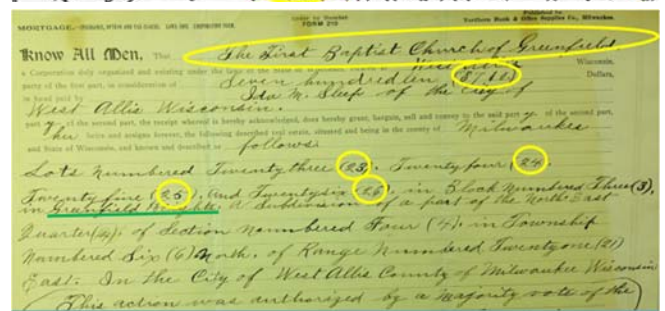 MORTGAGE.
Order by Number
FORM 210
Published by
Northern Bank & Office Supplies Co., Milwaukee.
Know All Men, That The First Baptist Church of Greenfield
a Corporation duly organized and existing under the laws of the State of Wisconsin,
party of the first part, in consideration of Seven hundred ten Dollars,
in hand paid by Ida M. Sleep of the City of
West Allis Wisconsin.
part y of the second part, the receipt whereof is hereby acknowledged, does hereby grant, bargain, sell and convey to the said part y of the second part,
her heirs and assigns forever, the following described real estate, situated and being in the county of Milwaukee
and State of Wisconsin, and known and described as follows:
Lots Numbered Twenty three (23), Twenty four (24),
Twenty five (25), and Twenty six (26), in Block Numbered Three (3),
in Greenfield Heights. A Subdivision of a part of the North East
Quarter (¼), of Section Numbered Four (4), in Township
Numbered Six (6) North, of Range Numbered Twenty one (21)
East. In the City of West Allis County of Milwaukee Wisconsin
(This action was authorized by a majority vote of the